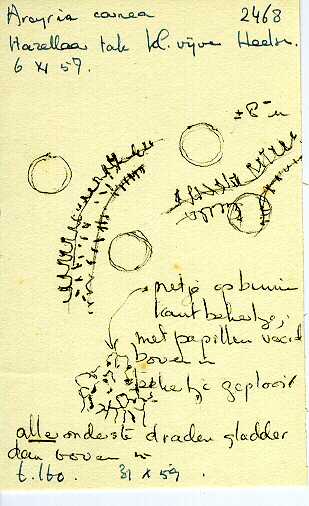 Arcyria carnea 2468
Hazellaar tak kl. vijver
6 XI 59.
± 8 u
netje op binnen
kant bekertje,
met papillen
boven
bekertje geplooid
alle onderste draden gladder
dan boven
t. lbo. 31 X 59.